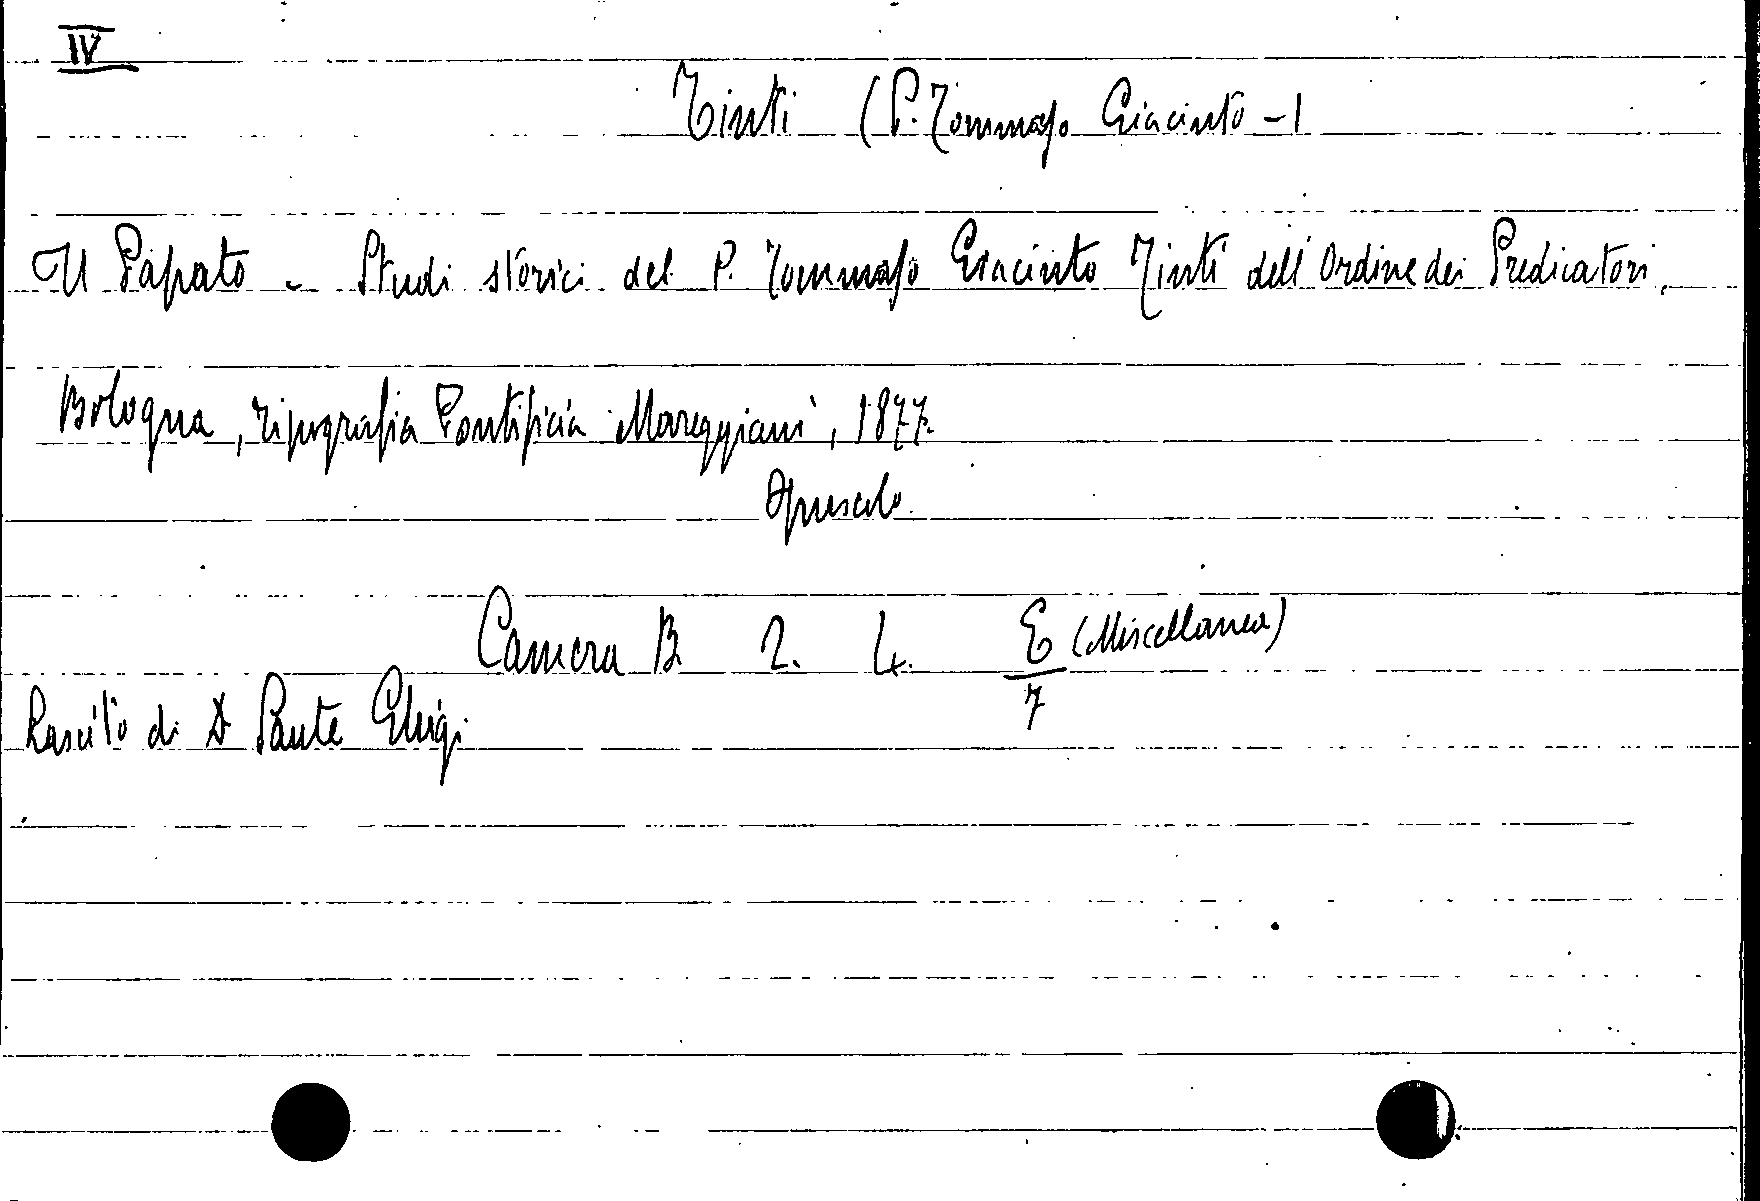 IV
Tinti (P. Tommaso Giacinto -)
Il Papato - Studi storici del P. Tommaso Giacinto Tinti dell'Ordine dei Predicatori,
Bologna, Tipografia Pontificia Mareggiani, 1877.
Opuscolo.
Camera B. 2. 4. E (Miscellanea)
7
Lascito di D Sante